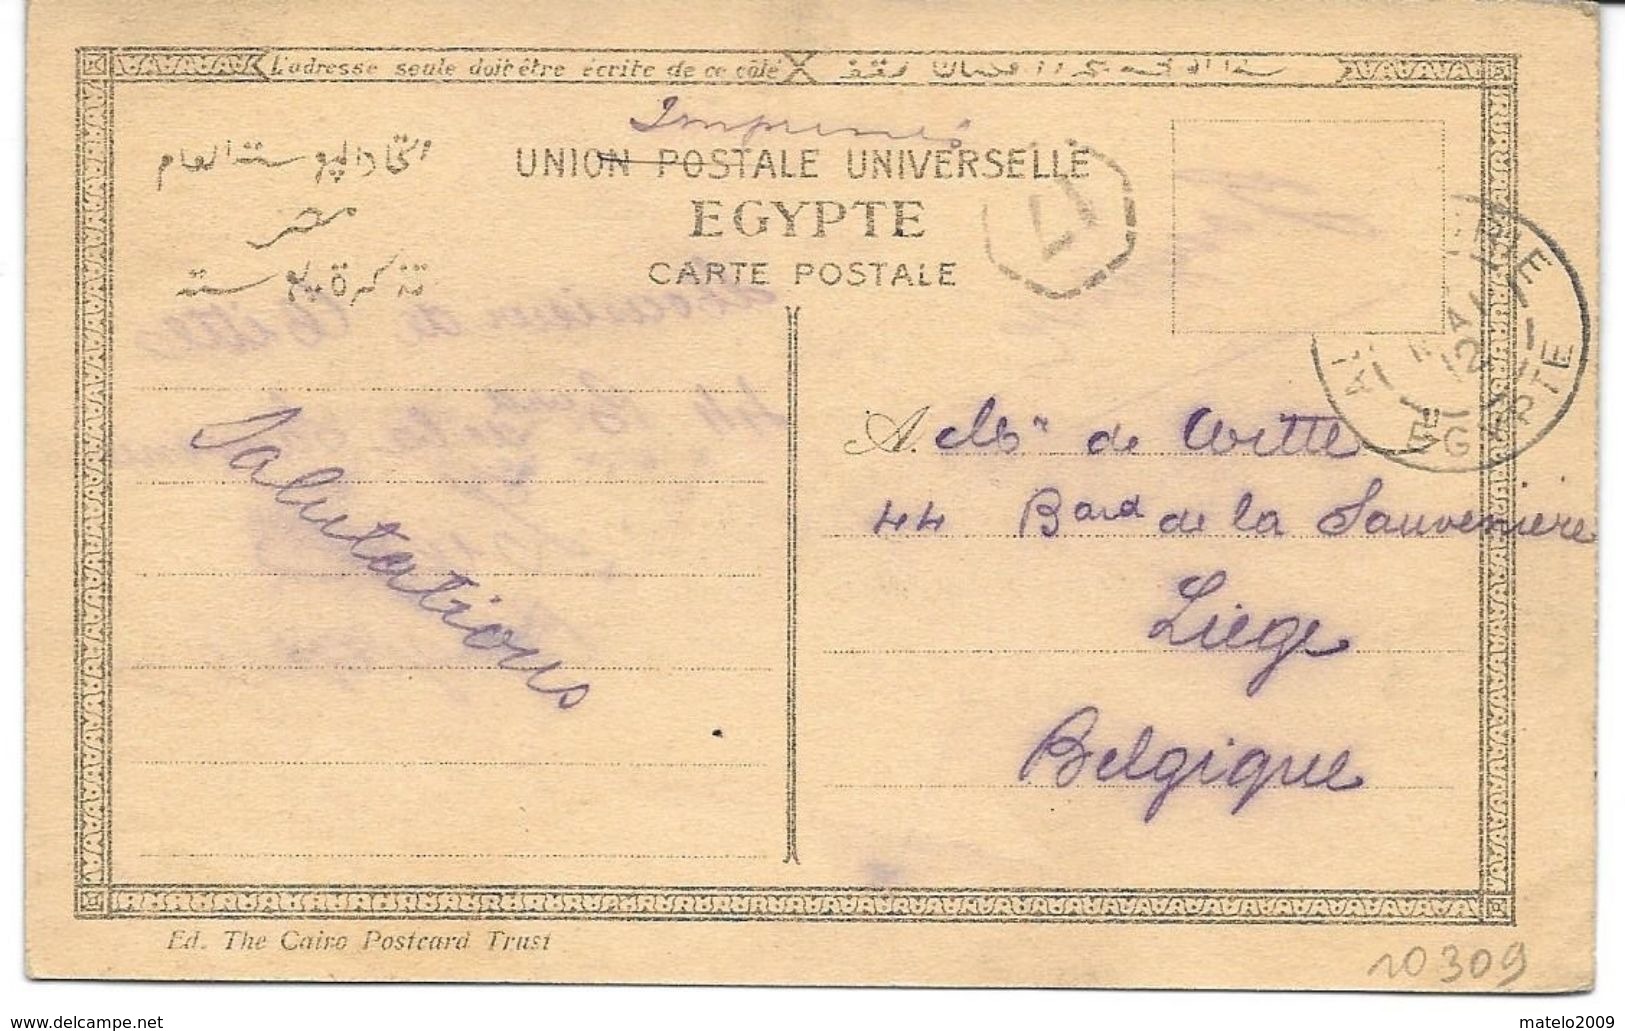 L'adresse seule doit être écrite de ce côté
Imprimés
اتحاد البوستة العام
مصر
تذكرة بوستة
UNION POSTALE UNIVERSELLE
EGYPTE
CARTE POSTALE
Salutations
A. Mr de Witte
44 Bard de la Sauvenière
Liege
Belgique
EGYPTE
Ed. The Cairo Postcard Trust
10309
www.delcampe.net
matelo2009